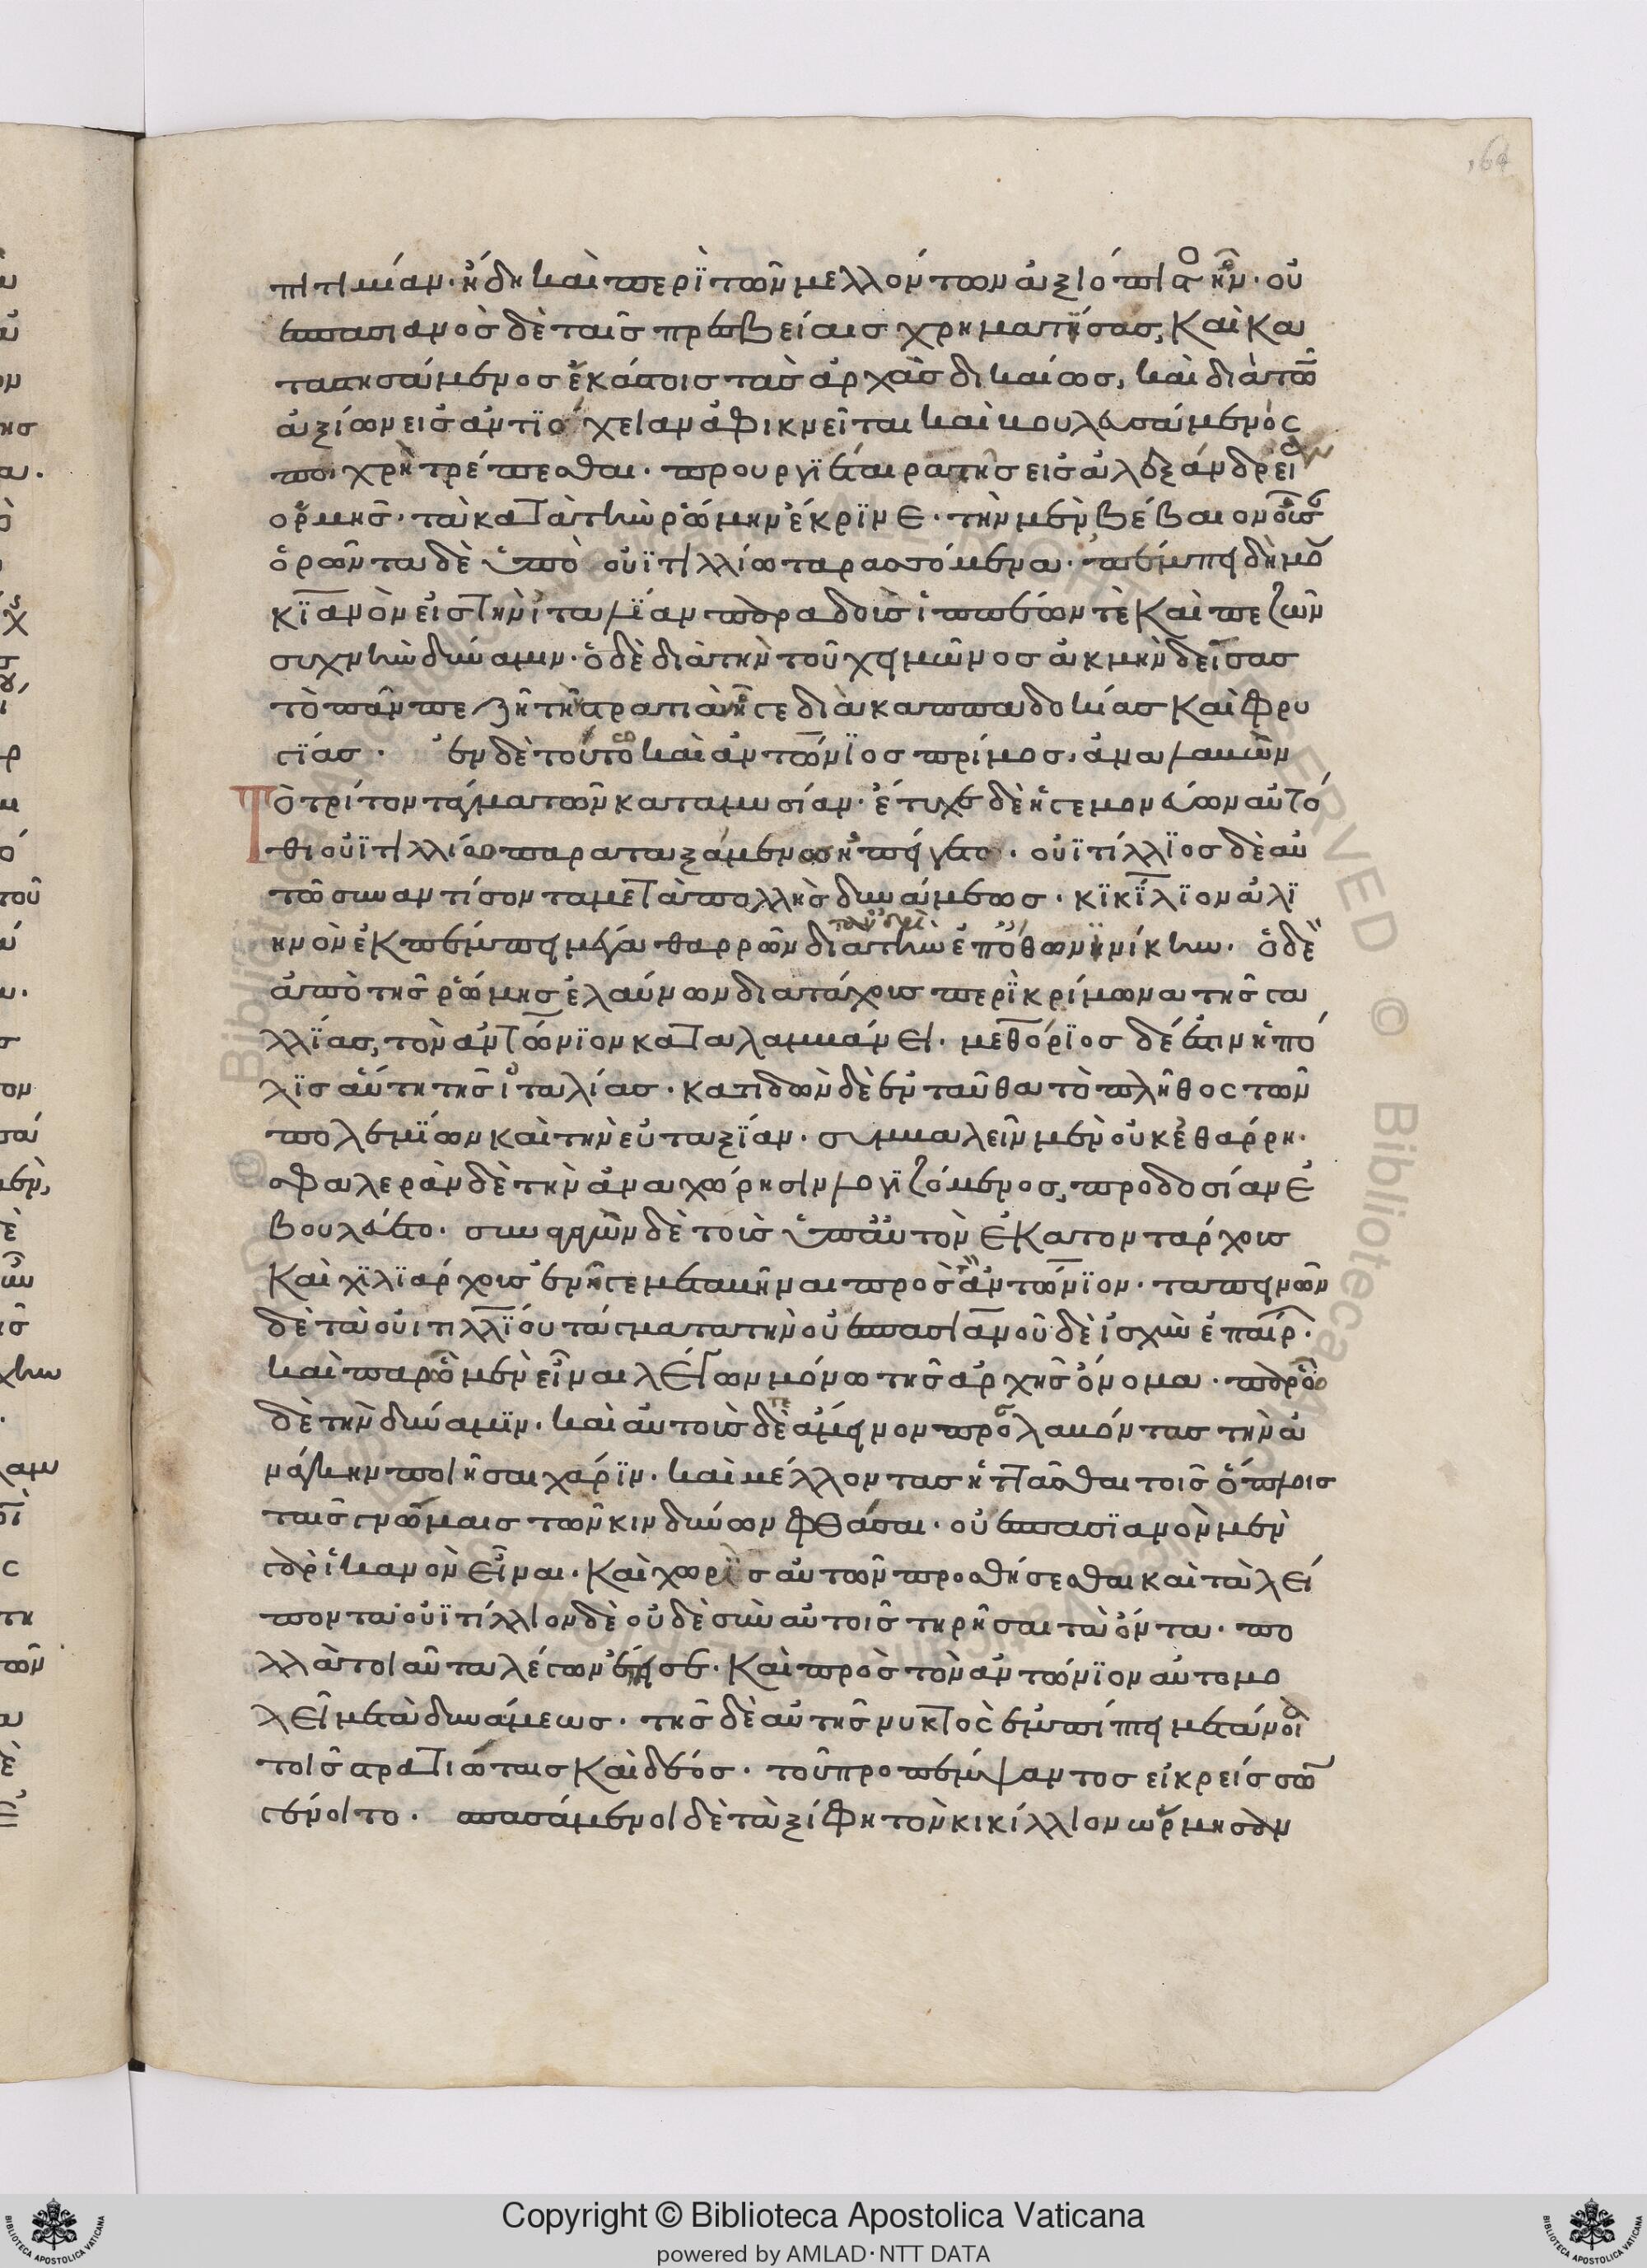 164
πιτιμίαν· ἤδη καὶ περὶ τῶν μελλόντων ἀξιόπιστος ἦν· οὐ
εσπασιανὸς δὲ ταῖς πρεσβείαις χρηματίσας, καὶ κα
ταστησάμενος ἑκάστοις τὰς ἀρχὰς δικαίως, καὶ διὰ τῶν
ἀξίων εἰς ἀντιόχειαν ἀφικνεῖται καὶ βουλευσάμενος
ποι χρὴ τρέπεσθαι· προυργιαίτερα τῆς εἰς ἀλεξάνδρειαν
ὁρμῆς· τὰ κατὰ τὴν ῥώμην ἔκρινε· τὴν μὲν βέβαιον οὖσαν
ὁρῶν τὰ δὲ ὑπὸ οὐϊτιλλίω ταρασσόμενα· πέμπει δὴ μο
κιανὸν εἰς τὴν ἰταλίαν παραδοὺς ἱππέων τὲ καὶ πεζῶν
συχνὴν δύναμιν· ὁ δὲ διὰ τὴν τοῦ χειμῶνος ἀκμὴν δείσας
τὸ πλεῖν πεζῆ τὴν στρατιὰν ἦγε διὰ καππαδοκίας καὶ φρυ
γίας· ἐν δὲ τούτω καὶ ἀντώνιος πρίμος, ἀναλαβὼν
Τὸ τρίτον τάγμα τῶν κατα μυσίαν· ἔτυχε δὲ ἡγεμονεύων αὐτό
θι οὐϊτιλλίω παραταξάμενος ἠπείγετο· οὐϊτίλλιος δὲ αὐ
τῶ συναντίσοντα μετὰ πολλῆς δυνάμεως· κικίλιον ἀλι
ηνὸν ἐκπέμπει μέγα θαρρῶν διὰ τὴν ἐπ' ὄθωνι νίκην· ὁ δὲ
ἀπὸ τῆς ῥώμης ἐλαύνων διατάχους περὶ κρίμωνα τῆς γα
λλίας, τὸν ἀντώνιον καταλαμβάνει· μεθόριος δέ ἐστιν ἡ πό
λις αὕτη τῆς ἰταλίας· κατιδὼν δὲ ἐνταῦθα τὸ πλῆθος τῶν
πολεμίων καὶ τὴν εὐταξίαν· συμβαλεῖν μὲν οὐκ ἐθάρρη·
σφαλερὰν δὲ τὴν ἀναχώρησιν λογιζόμενος, προδοσίαν ἐ
βουλεύετο· συναγαγὼν δὲ τοὺς ὑπ' αὐτὸν ἑκατοντάρχους
καὶ χιλιάρχους ἐνῆγε μεταβῆναι πρὸς ἀντώνιον· ταπεινῶν
δὲ τὰ οὐιτιλλίου τάγματα τὴν οὐεσπασιανοῦ δὲ ἰσχὺν ἐπαίρων·
καὶ παρ' ὧ μὲν εἶναι λέγων μόνω τῆς ἀρχῆς ὄνομα· παρ' ὧ
δὲ τὴν δύναμιν· καὶ αὐτοὺς δὲ ἄμεινον προλαβόντας τὴν ἀ
νάγκην ποιῆσαι χάριν· καὶ μέλλοντας ἡττᾶσθαι τοῖς ὅπλοις
ταῖς γνώμαις τῶν κινδύνων φθάσαι· οὐεσπασιανὸν μὲν
γὰρ ἱκανὸν εἶναι· καὶ χωρὶς αὐτῶν προσθήσεσθαι καὶ τὰ λεί
ποντα· οὐϊτίλλιον δὲ οὐδὲ σὺν αὐτοῖς τηρῆσαι τὰ ὄντα· πο
λλὰ τοιαῦτα λέγων ἔπεισε· καὶ πρὸς τὸν ἀντώνιον αὐτομο
λεῖ μετὰ δυνάμεως· τῆς δὲ αὐτῆς νυκτὸς ἐνπίπτει μετάνοια
τοῖς στρατιώταις καὶ δέος· τοῦ προπέμψαντος εἰ κρείσσων
γένοιτο· σπασάμενοι δὲ τὰ ξίφη τὸν κικίλλιον ὥρμησαν
Copyright © Biblioteca Apostolica Vaticana
powered by AMLAD·NTT DATA